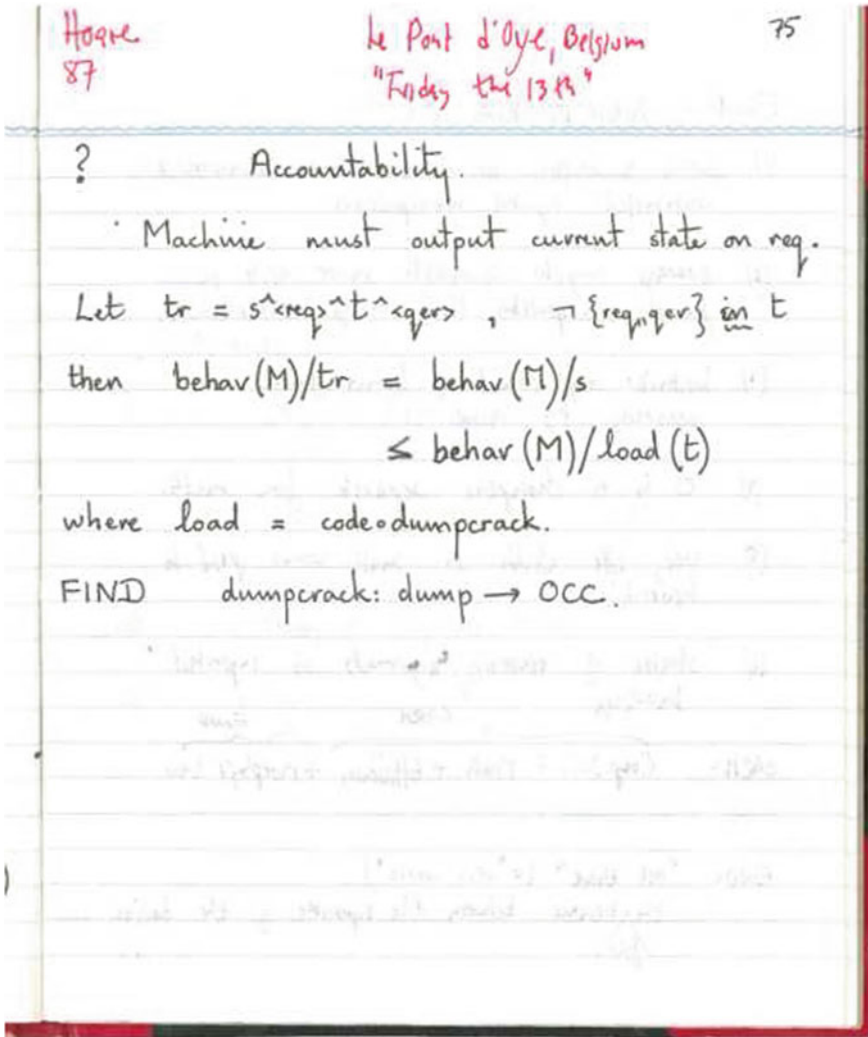 Hoare Le Pont d'Oye, Belgium 75
87 "Friday the 13th"
? Accountability.
Machine must output current state on req.
Let tr = s^<req>^t^<qer> , ¬ {req,qer} in t
then behav(M)/tr = behav(M)/s
≤ behav(M)/load(t)
where load = code∘dumpcrack.
FIND dumpcrack: dump → OCC.